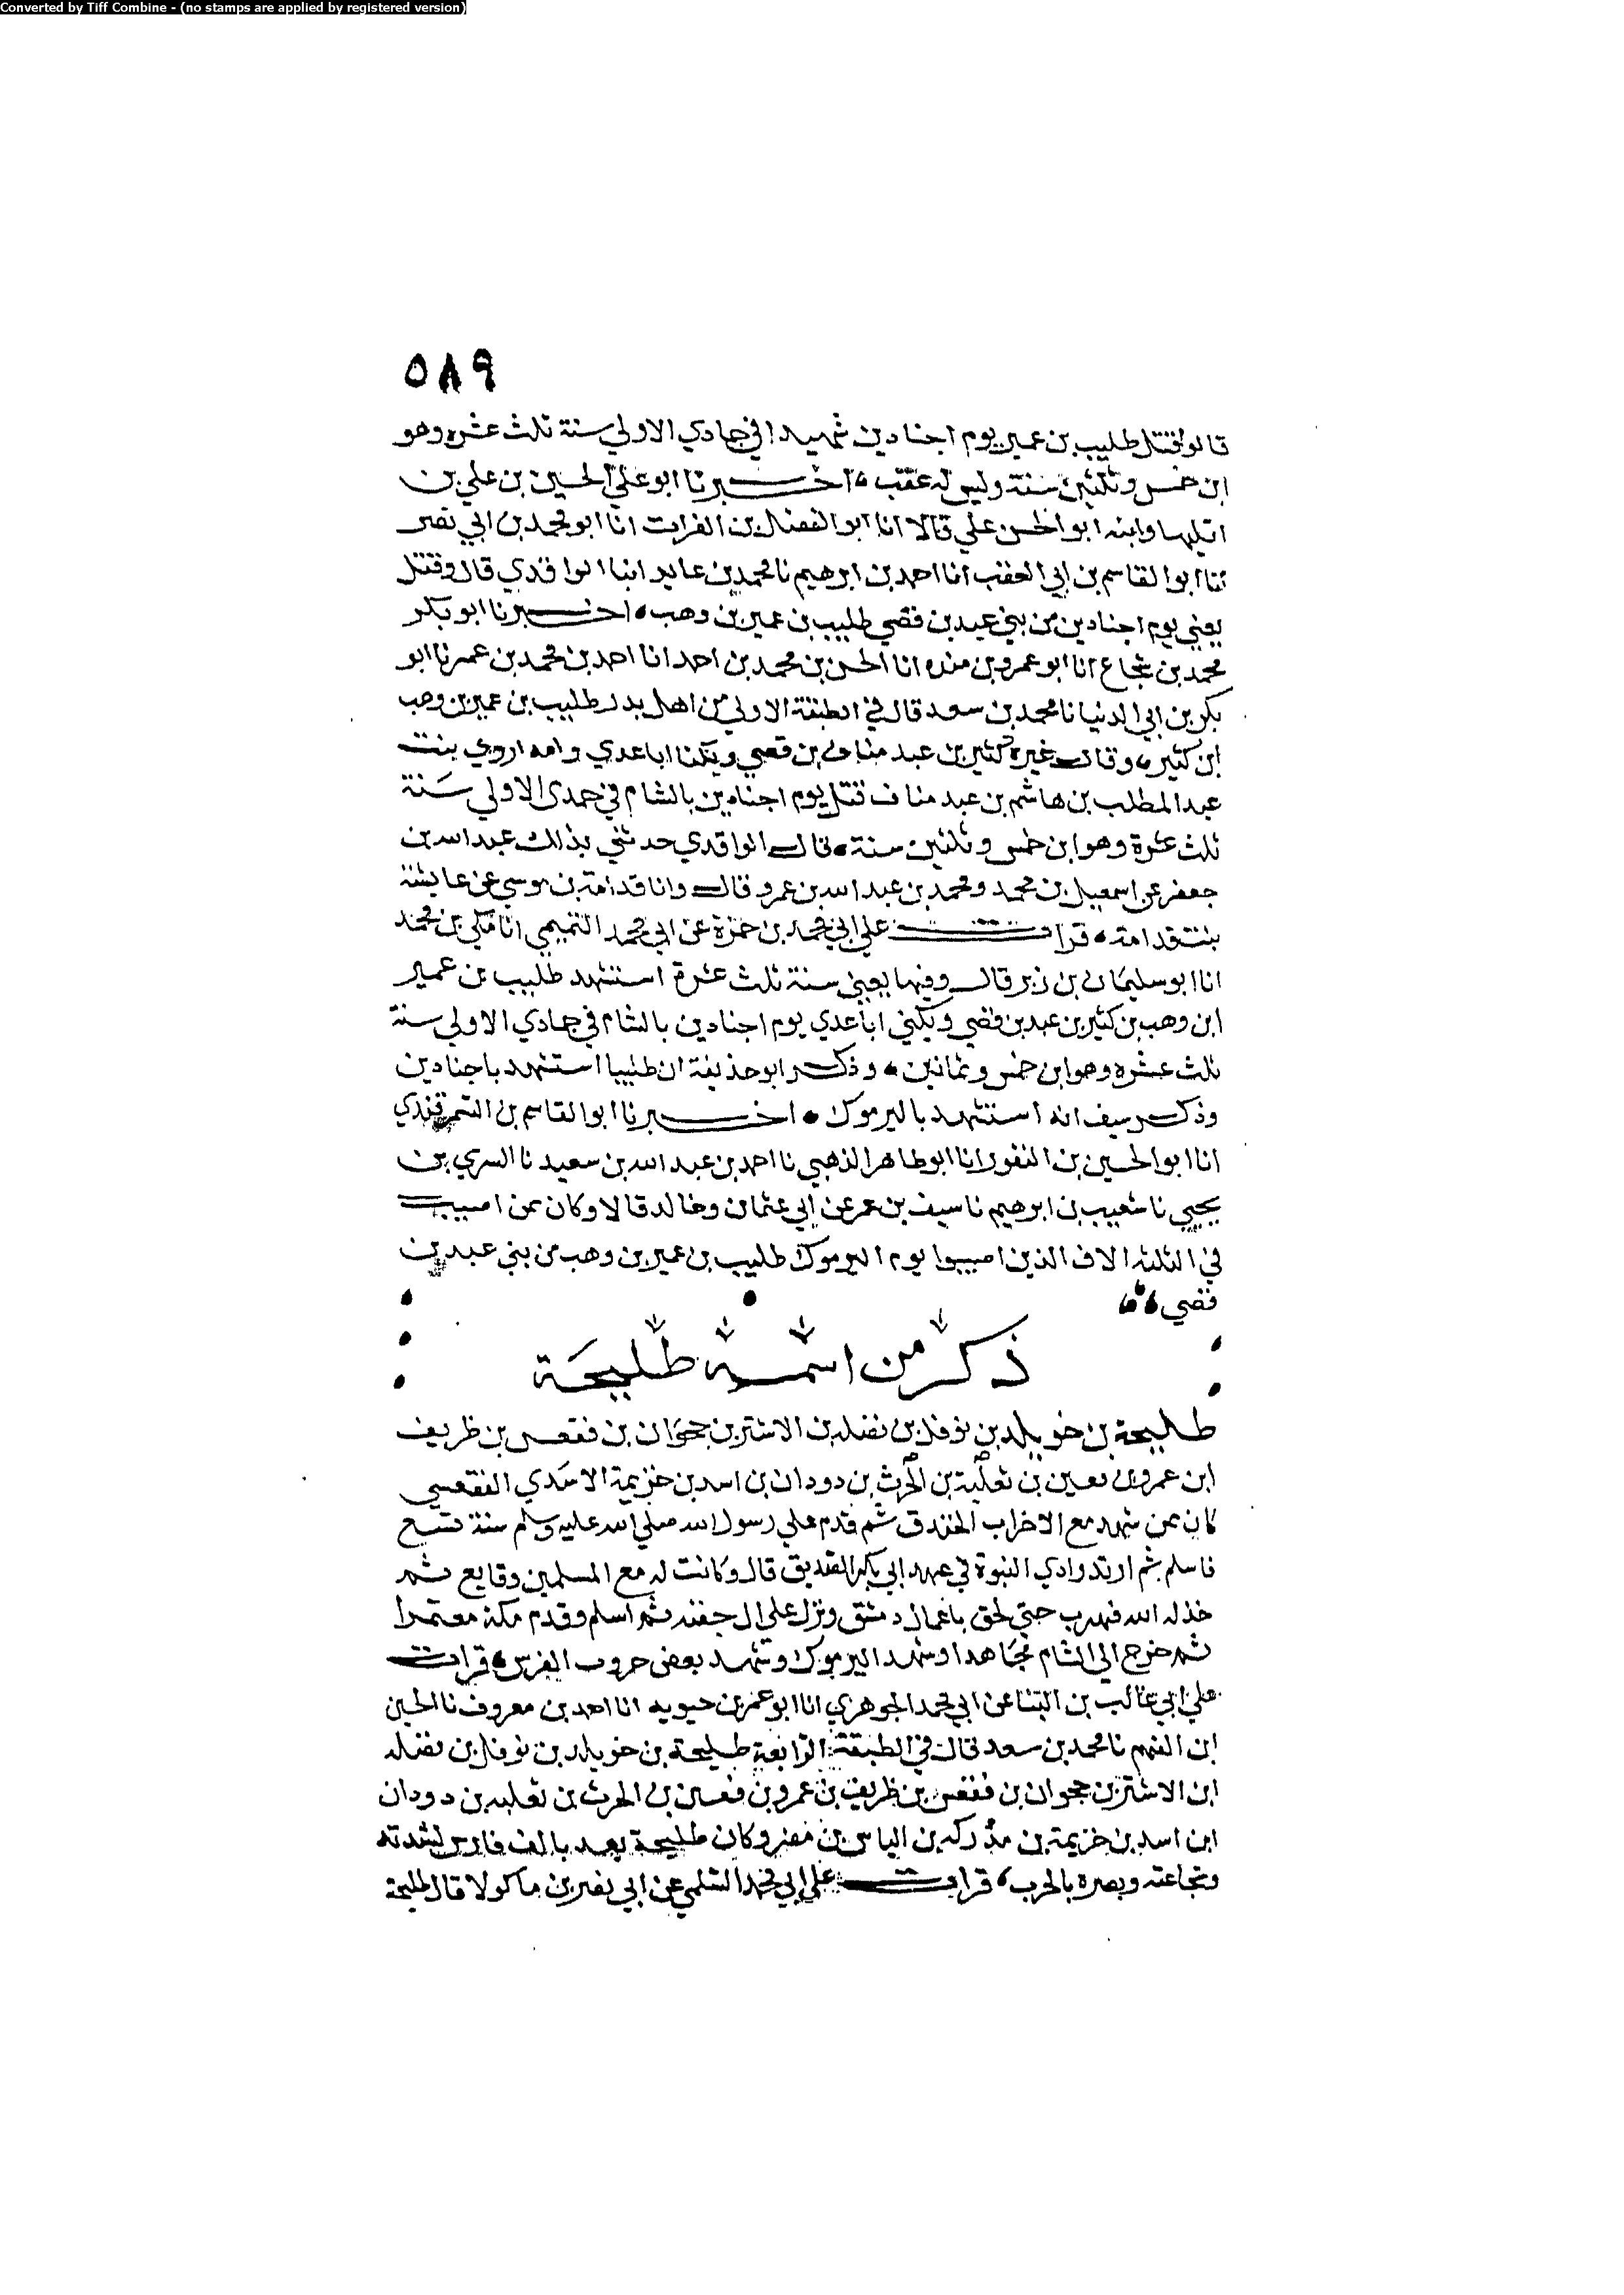 Converted by Tiff Combine - (no stamps are applied by registered version)
٥٨٩
قالو قتل طليب بن عمير يوم اجنادين شهيدا في جمادي الاولي سنة ثلث عشره وهو
ابن خمس وثلثين سنة وليس له عقب اخبرنا ابو علي الحسين بن علي بن
اتليها وابنه ابو الحسن علي قالا انا ابو الفضل بن الفرات انا ابو محمد بن ابي نصر
نا ابو القاسم بن ابي العقب انا احمد بن ابرهيم نا محمد بن عايد انبا الواقدي قال وقتل
يعني يوم اجنادين من بني عبد بن قصي طليب بن عمير بن وهب اخبرنا ابو بكر
محمد بن شجاع انا ابو عمرو بن منده انا الحسن بن محمد بن احمد انا احمد بن محمد بن عمر نا ابو
بكر بن ابي الدنيا نا محمد بن سعد قال في الطبقة الاولي من اهل بدر طليب بن عمير بن وهب
ابن كثير وقال غيره كثير بن عبد مناف بن قصي ويكنا ابا عدي وامه اروي بنت
عبد المطلب بن هاشم بن عبد مناف قتل يوم اجنادين بالشام في جمدى الاولي سنة
ثلث عشرة وهو ابن خمس وثلثين سنة قال الواقدي حدثني بذلك عبد الله بن
جعفر عن اسمعيل بن محمد ومحمد بن عبد الله بن عمرو قال وانا قدامة بن موسي عن عايشة
بنت قدامة قرات علي ابي محمد بن حمزة عن ابي محمد التميمي انا مكي بن محمد
انا ابو سليمان بن زبر قال وفيها يعني سنة ثلث عشرة استشهد طليب بن عمير
ابن وهب بن كثير بن عبد بن قصي ويكني ابا عدي يوم اجنادين بالشام في جمادي الاولي سنة
ثلث عشره وهو ابن خمس وثمانين وذكر ابو حذيفة ان طليبا استشهد باجنادين
وذكر سيف انه استشهد باليرموك اخبرنا ابو القاسم بن السمرقندي
انا ابو الحسين بن النقور انا ابو طاهر الذهبي نا احمد بن عبد الله بن سعيد نا السري بن
يحيي نا شعيب بن ابرهيم نا سيف بن عمر عن ابي عثمان وخالد قالا وكان ممن اصيب
في الثلثه الاف الذين اصيبوا يوم اليرموك طليب بن عمير بن وهب من بني عبد بن
قصي
ذكر من اسمه طليحة
طليحة بن خويلد بن نوفل بن نضله بن الاشتر بن جحوان بن فقعس بن ظريف
ابن عمرو بن قعين بن ثعلبة بن الحرث بن دودان بن اسد بن خزيمة الاسدي الفقعسي
كان ممن شهد مع الاحزاب الخندق ثم قدم علي رسول الله صلي الله عليه وسلم سنة تسع
فاسلم ثم ارتد وادي النبوة في عهد ابي بكر الصديق قال وكانت له مع المسلمين وقايع ثم
خذله الله فهرب حتي لحق باعمال دمشق ونزل علي ال جفنه ثم اسلم وقدم مكة معتمرا
ثم خرج الي الشام مجاهدا وشهد اليرموك وشهد بعض حروب الفرس قرات
علي ابي غالب بن البنا عن ابي محمد الجوهري انا ابو عمر بن حيويه انا احمد بن معروف نا الحسين
ابن الفهم نا محمد بن سعد قال في الطبقة الرابعة طليحة بن خويلد بن نوفل بن نضله
ابن الاشتر بن جحوان بن فقعس بن ظريف بن عمرو بن قعين بن الحرث بن ثعلبه بن دودان
ابن اسد بن خزيمة بن مدركه بن الياس بن مضر وكان طليحة يعد بالف فارس لشدته
وشجاعته وبصره بالحرب قرات علي ابي محمد السلمي عن ابي نصر بن ماكولا قال طليحة